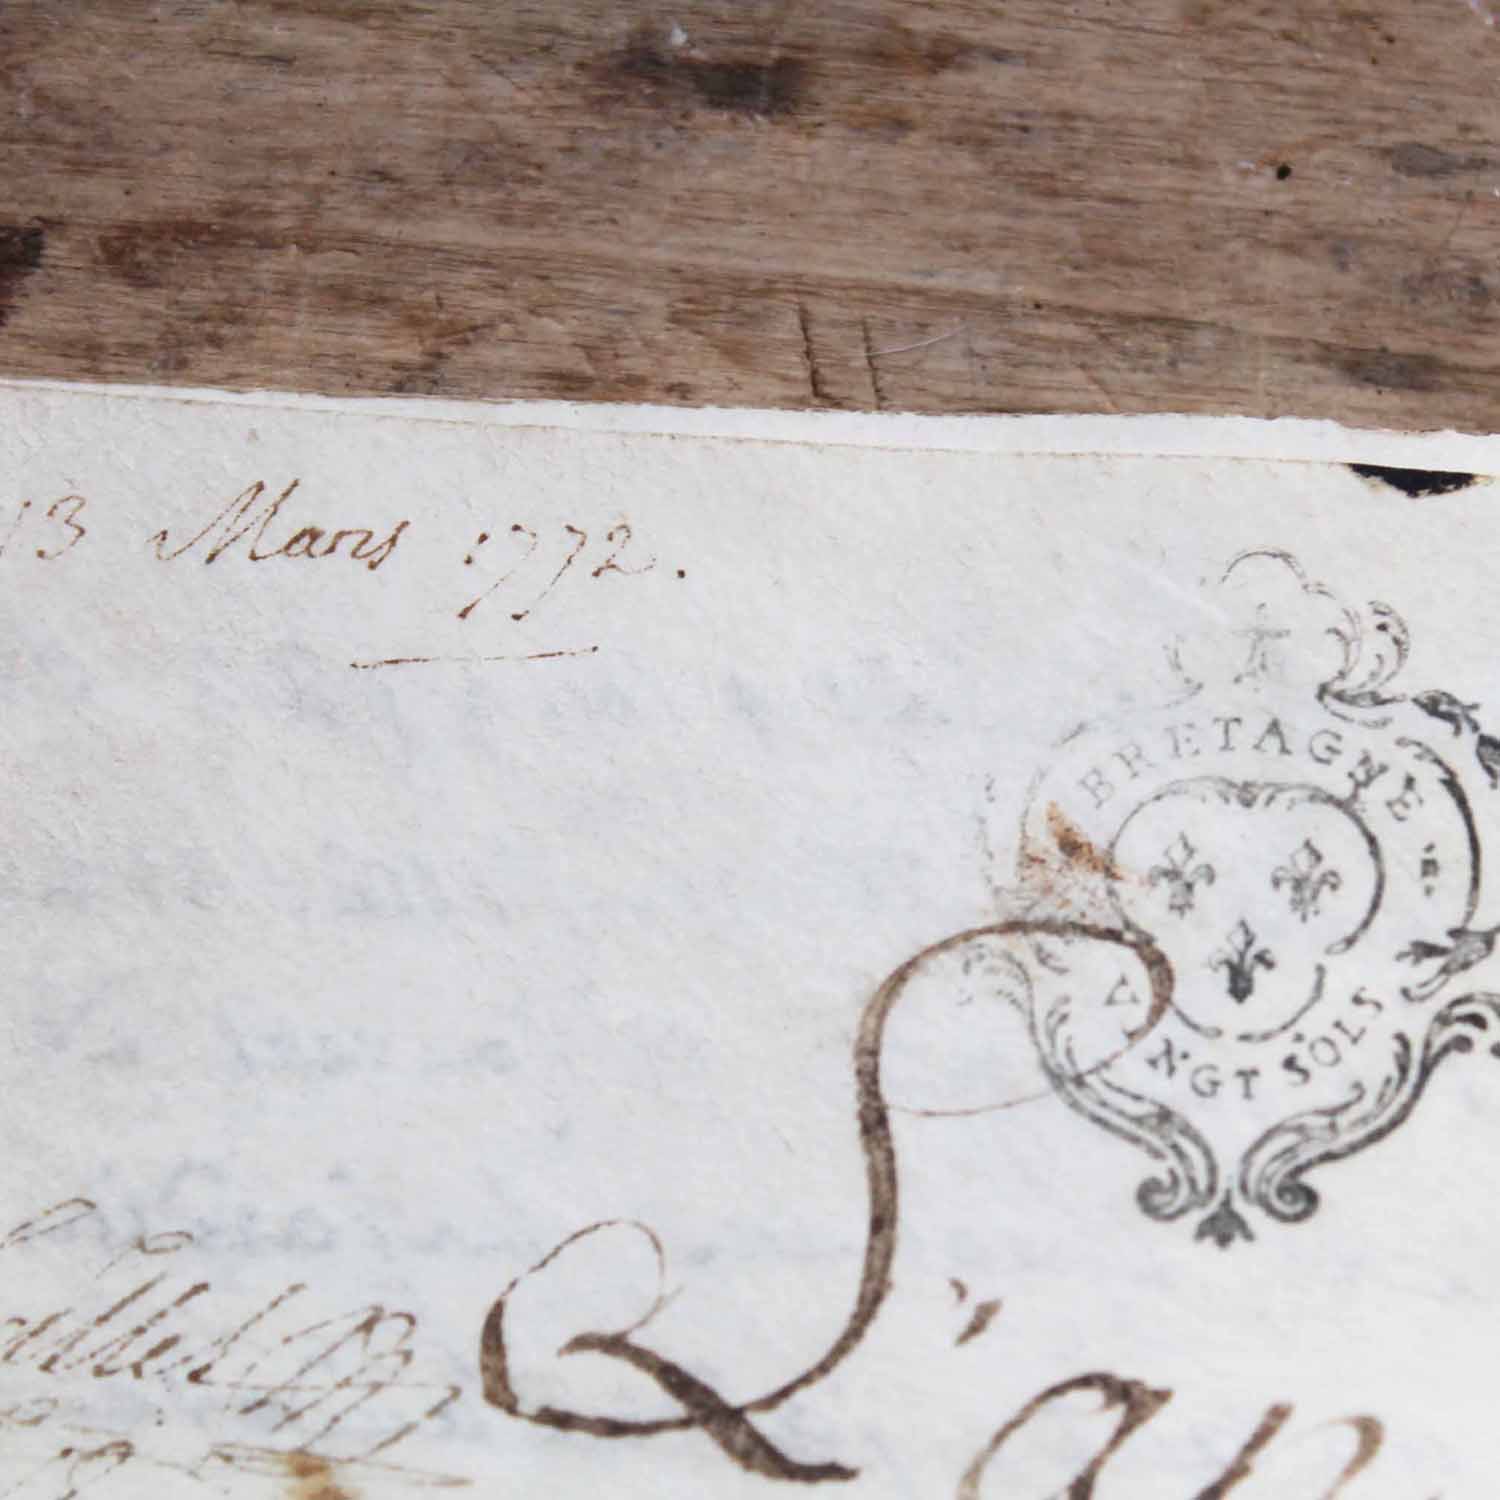 13 Mars 1772.
BRETAGNE
VINGT SOLS
L'an